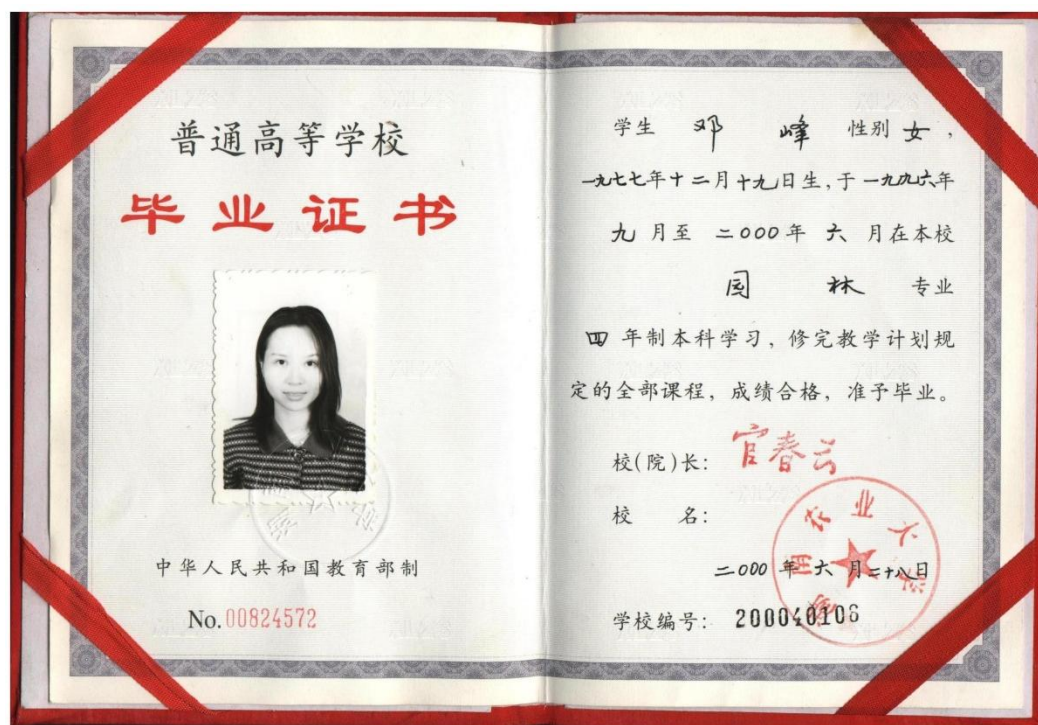 普通高等学校
毕业证书
中华人民共和国教育部制
No.00824572
学生 邓 峰 性别 女,
一九七七年十二月十九日生,于一九九六年
九 月至 二000年 六 月在本校
园 林 专业
四 年制本科学习,修完教学计划规
定的全部课程,成绩合格,准予毕业。
校(院)长: 官春云
校 名:
湖南农业大学
二000年六月二十八日
学校编号: 200040106